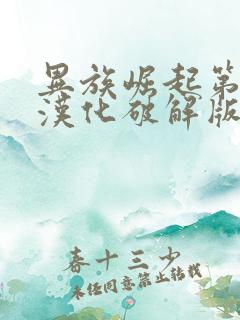 異族崛起第
漢化破解版
春十三少
未经同意禁止转载